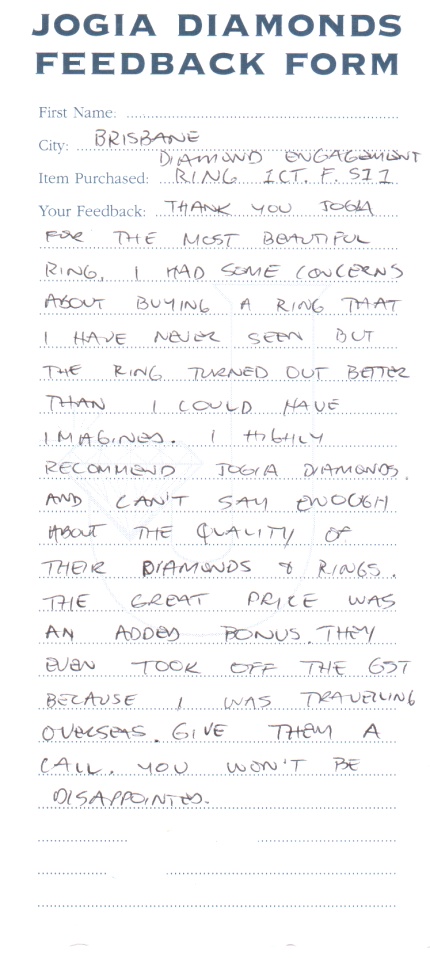 JOGIA DIAMONDS
FEEDBACK FORM
First Name:
City: BRISBANE
DIAMOND ENGAGEMENT
Item Purchased: RING 1CT. F. SI1
Your Feedback: THANK YOU JOGIA
FOR THE MOST BEAUTIFUL
RING. I HAD SOME CONCERNS
ABOUT BUYING A RING THAT
I HAVE NEVER SEEN BUT
THE RING TURNED OUT BETTER
THAN I COULD HAVE
IMAGINED. I HIGHLY
RECOMMEND JOGIA DIAMONDS.
AND CAN'T SAY ENOUGH
ABOUT THE QUALITY OF
THEIR DIAMONDS & RINGS.
THE GREAT PRICE WAS
AN ADDED BONUS. THEY
EVEN TOOK OFF THE GST
BECAUSE I WAS TRAVELLING
OVERSEAS. GIVE THEM A
CALL. YOU WON'T BE
DISAPPOINTED.